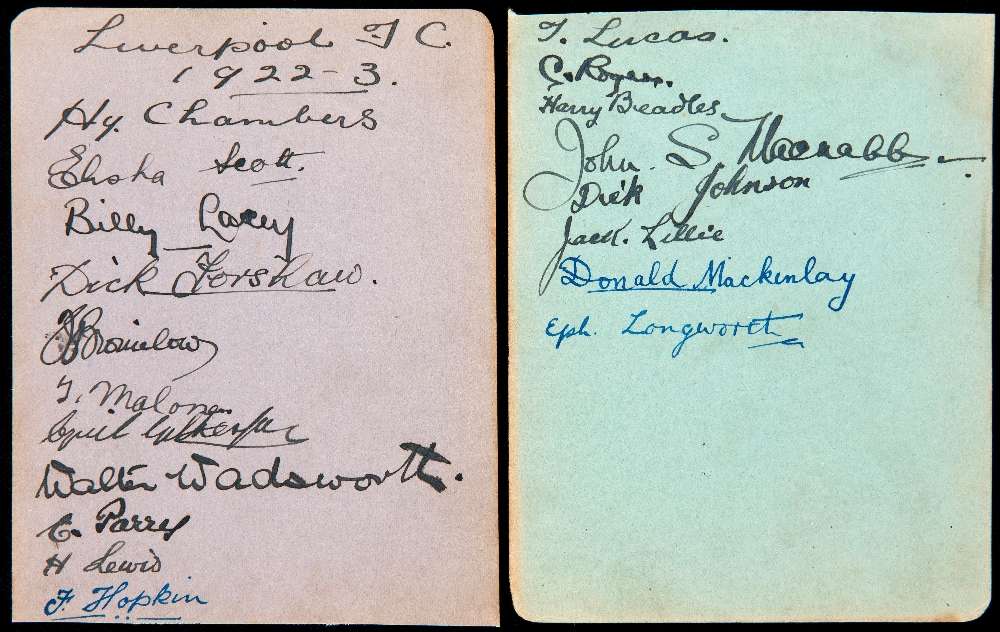 Liverpool F C.
1922-3.
Hy. Chambers
Elisha Scott.
Billy Lacey
Dick Forshaw.
Bromilow
T. Malone
Cyril Gilhespy
Walter Wadsworth.
E. Parry
H Lewis
F. Hopkin
T. Lucas.
C. Rogers.
Harry Beadles
John. S. Macnabb.
Dick Johnson
Jack. Lillie
Donald Mackinlay
Eph. Longworth